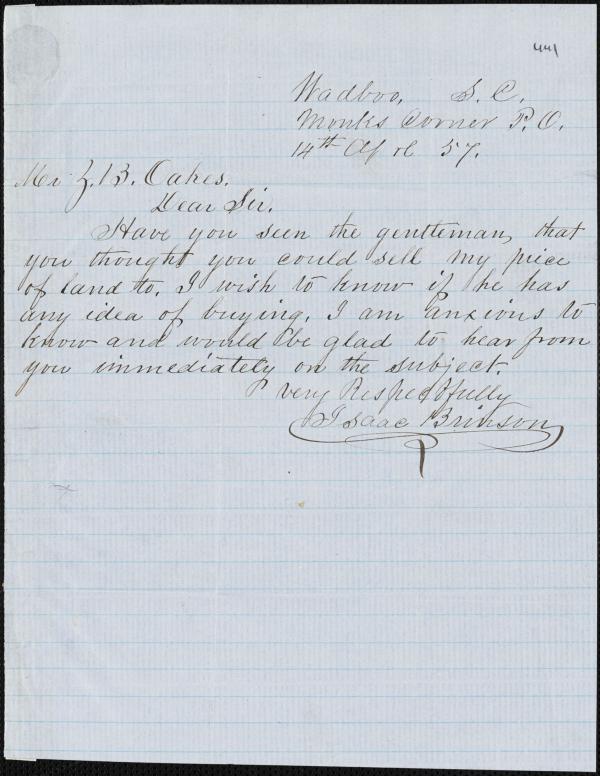 441
Wadboo, S. C.
Monks Corner P. O.
14th Ap rl 57.
Mr Z. B. Oakes.
Dear Sir.
Have you seen the gentleman, that
you thought you could sell my piece
of land to. I wish to know if he has
any idea of buying. I am anxious to
know and would be glad to hear from
you immediately on the subject.
very Respectfully
Isaac Brinson